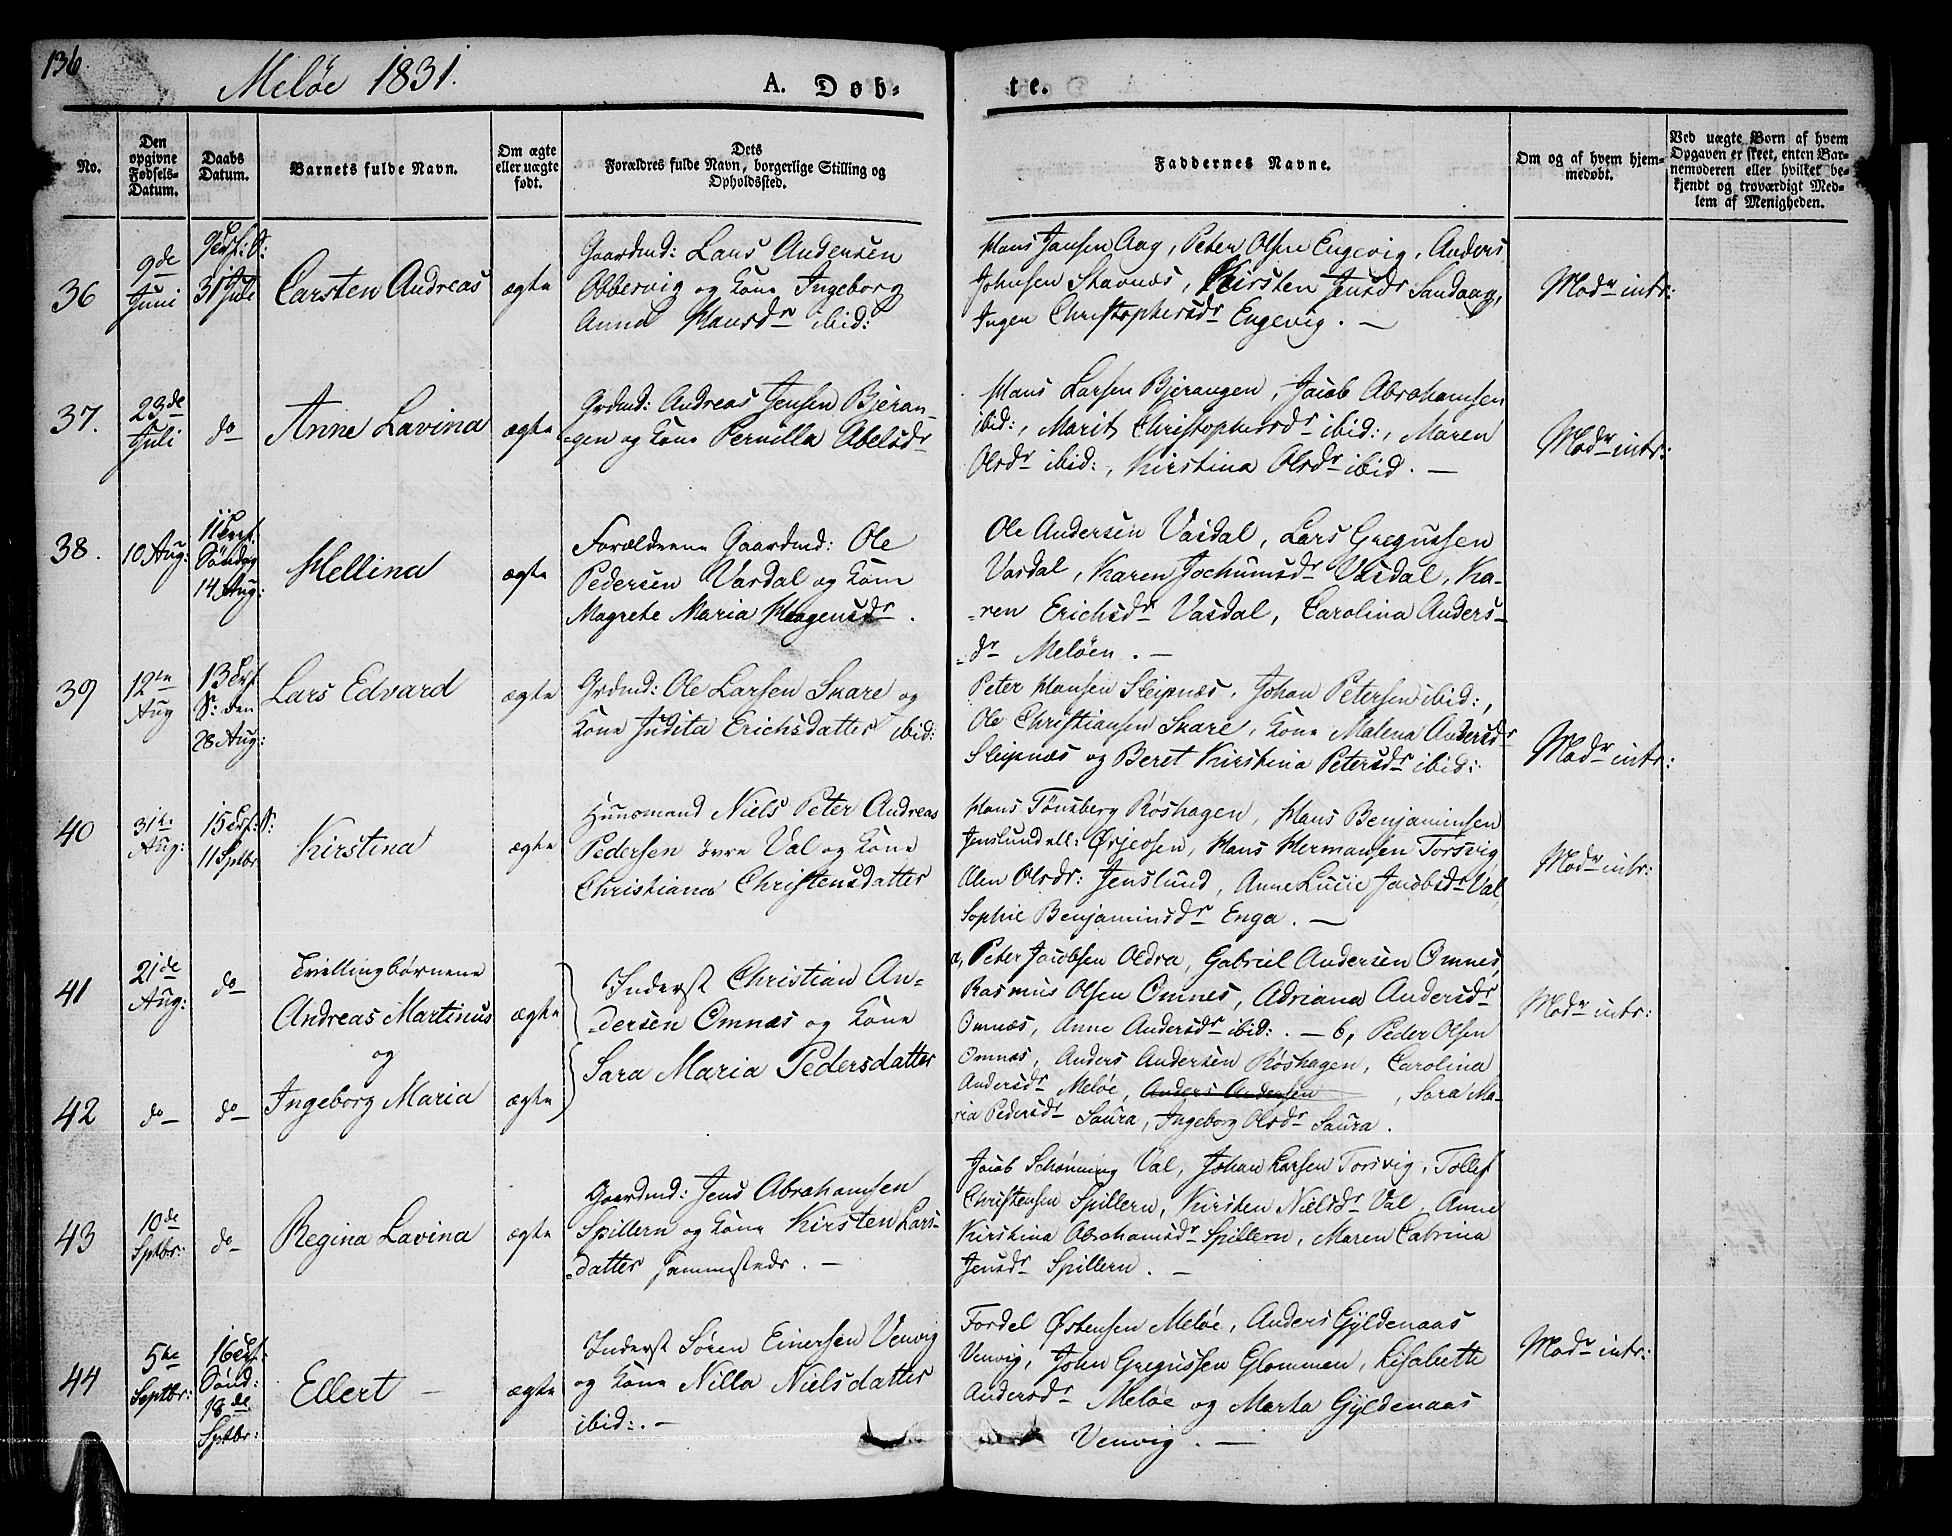 136.
Meløe 1831.
A. Døb-
te.
No.
Den opgivne Fødsels-Datum.
Daabs Datum.
Barnets fulde Navn.
Om ægte eller uægte født.
Dets
Forældres fulde Navn, borgerlige Stilling og
Opholdssted.
Faddernes Navne.
Om og af hvem hjem-
medøbt.
Ved uægte Børn af hvem
Opgaven er skeet, enten Bar-
nemoderen eller hvilket be-
kjendt og troværdigt Med-
lem af Menigheden.
36
9de
Juni
31 Juli
Carsten Andreas
ægte
Gaardmd: Lars Andersen
Obbersvig og Kone Ingeborg
Anna Hansdr ibid:
Hans Jansen Aag, Peter Olsen Engevig, Anders
Johnsen Stavnæs, Kirsten Jensdr Sandaag,
Ingen Christophersdr Engevig. —
Modr intr:
37.
23de
Juli
do
Anne Lavina
ægte
Grdmd: Andreas Jensen Bjeran-
-gen og Kone Pernilla Abelsdr
Hans Larsen Bjerangen, Jacob Abrahamsen
ibid:, Marit Christophersdr ibid:, Maren
Olsdr ibid:, Kirstina Olsdr ibid. —
Modr intr:
38.
10 Aug:
11 Tref.
Søndag
14 Aug:
Hellina
ægte
Forældrene Gaardmd: Ole
Pedersen Vasdal og Kone
Magrete Maria Haagensdr.
Ole Andersen Vasdal, Lars Gregussen
Vasdal, Karen Jochumsdr Vasdal, Ka-
-ren Erichsdr Vasdal, Carolina Anders-
-dr Meløen. —
39
12te
Aug
13 Tref
S: den
28 Aug:
Lars Edvard
ægte
Grdmd: Ole Larsen Skare og
Kone Judita Erichsdatter ibid:
Peter Hansen Sleipnæs, Johan Petersen ibid:,
Ole Christiansen Skare, Kone Malena Andersdr
Sleipnæs og Beret Kirstina Petersdr ibid:
Modr intr:
40
31te
Aug:
15 Tref: S:
11 Sptbr
Kirstina
ægte
Huusmand Niels Peter Andreas
Pedersen övre Val og Kone
Christiana Christensdatter
Hans Tønsberg Røshagen, Hans Benjaminsen
Jenslund ell: Ørjeosen, Hans Hermansen Torsvig
Olen Olsdr: Jenslund, Anne Lucie Jacobsdr Val
Sophie Benjaminsdr Enga. —
Modr intr:
41
21de
Aug:
do
Tvillingbørnene
Andreas Martinus
og
ægte
Inderst Christian An-
-dersen Omnæs og Kone
Sara Maria Pedersdatter
a, Peter Jacobsen Oldra, Gabriel Andersen Omnes,
Rasmus Olsen Omnes, Adriana Andersdr
Omnæs, Anne Andersdr ibid:. — b, Peder Olsen
Omnæs, Anders Andersen Røshagen, Carolina
Andersdr Meløe, Anders Andersen, Sara Ma-
ria Pedersdr Saura, Ingeborg Olsdr Saura.
Modr intr:
42
do
do
Ingeborg Maria
ægte
43
10de
Sptbr:
do
Regina Lavina
ægte
Gaardmd: Jens Abrahamsen
Spillern og Kone Kirsten Lars-
-datter sammesteds. —
Jacob Schønning Val, Johan Larsen Torsvig, Tollef
Christensen Spillern, Kirsten Nielsdr Val, Anne
Kirstina Abrahamsdr Spillern, Maren Catrina
Jensdr Spillern. —
44
5te
Septbr:
16 Tref:
Sønd:
18de
Sptbr:
Ellert —
ægte
Inderst Søren Einersen Venvig
og Kone Nilla Nielsdatter
ibid:. —
Fordel Østensen Meløe, Anders Gyldenaas
Venvig, John Gregussen Glommen, Lisabeth
Andersdr Meløe og Marta Gyldenaas
Venvig. —
Modr intr: